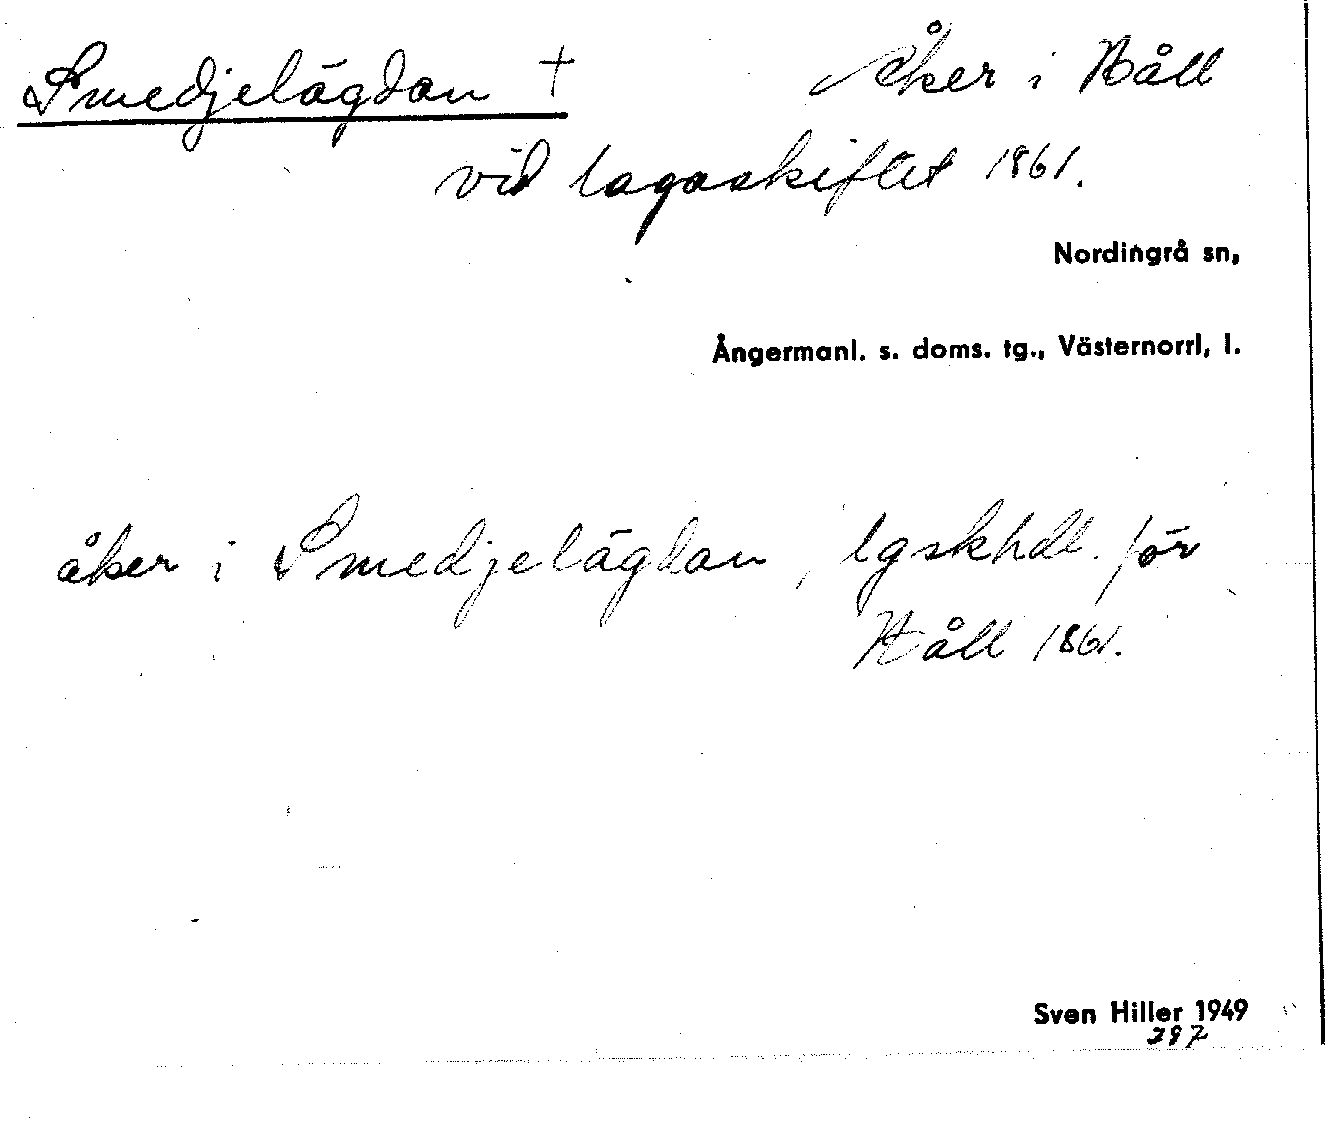 Smedjelägdan + Åker i Håll
vid lagaskiftet 1861.
Nordingrå sn,
Ångermanl. s. doms. tg., Västernorrl, l.
åker i Smedjelägdan, lgskhdl. för
Håll 1861.
Sven Hiller 1949
297